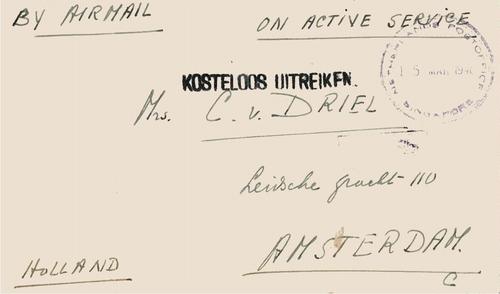 BY AIRMAIL
ON ACTIVE SERVICE
NETHERLANDS POSTOFFICE
15 MAR 194
SINGAPORE
KOSTELOOS UITREIKEN.
Mrs. C. v. DRIEL
Leidsche gracht 110
AMSTERDAM.
C
HOLLAND